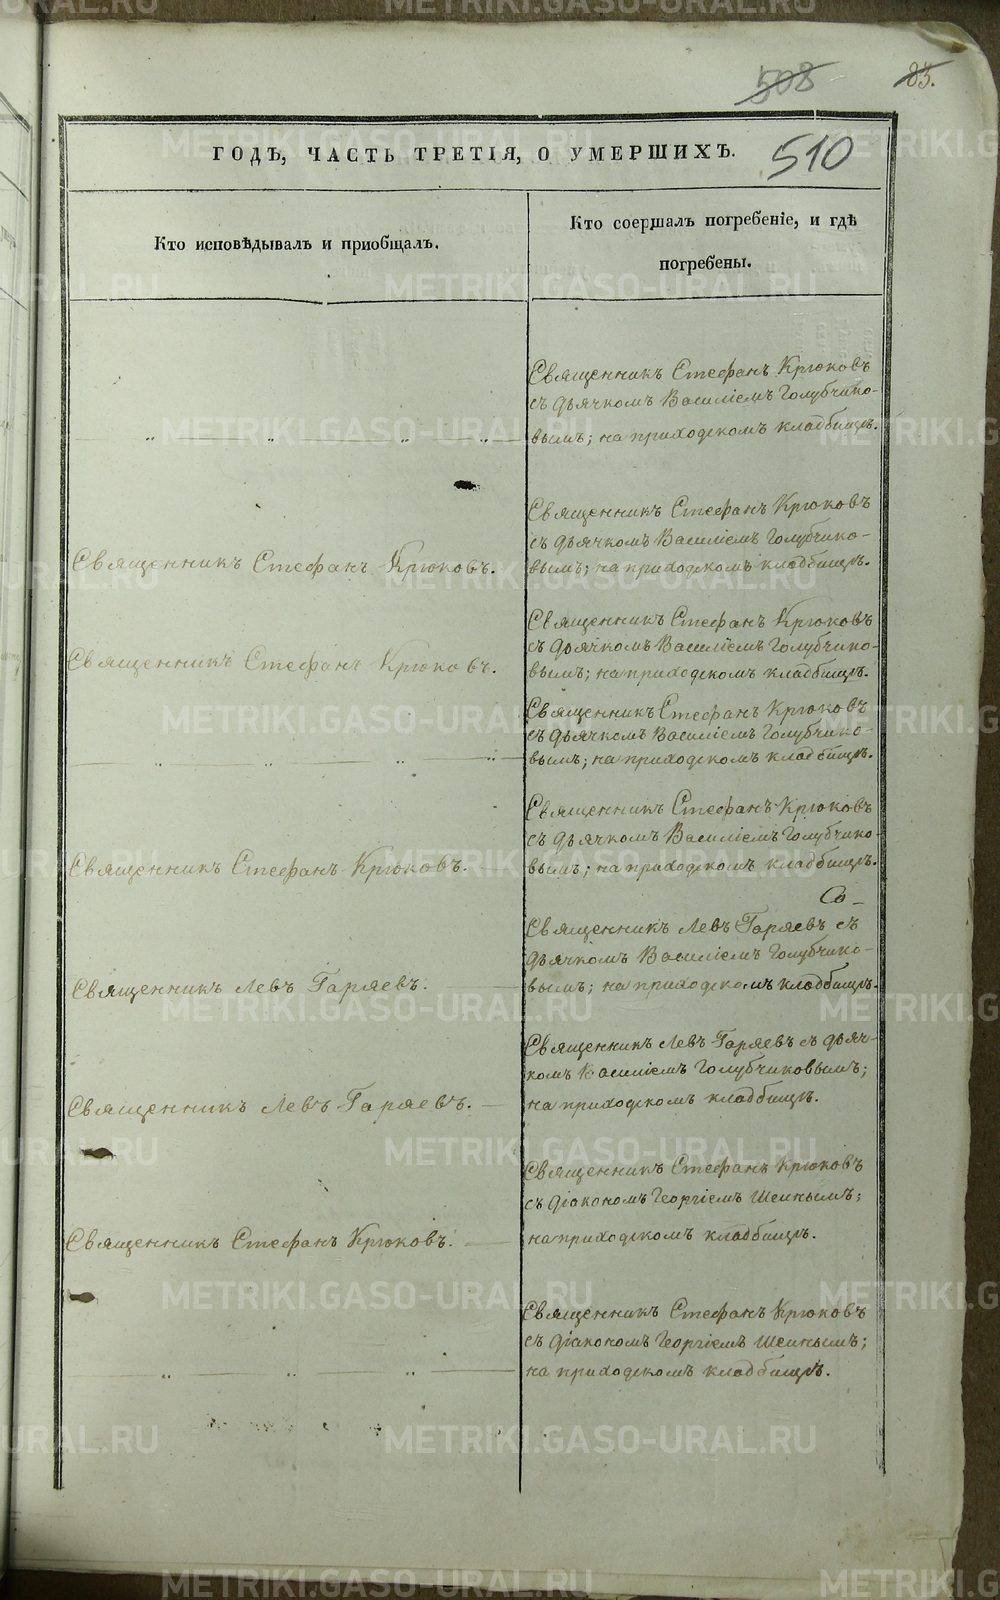 508
85.
510
ГОДЪ, ЧАСТЬ ТРЕТІЯ, О УМЕРШИХЪ.
Кто исповѣдывалъ и приобщалъ.
Кто соершалъ погребеніе, и гдѣ
погребены.
Священникъ Стефанъ Крюковъ
съ дьячкомъ Василіемъ Голубчико-
вымъ; на приходскомъ кладбищѣ.
Священникъ Стефанъ Крюковъ.
Священникъ Стефанъ Крюковъ
съ дьячкомъ Василіемъ Голубчико-
вымъ; на приходскомъ кладбищѣ.
Священникъ Стефанъ Крюковъ.
Священникъ Стефанъ Крюковъ
съ дьячкомъ Василіемъ Голубчико-
вымъ; на приходскомъ кладбищѣ.
Священникъ Стефанъ Крюковъ
съ дьячкомъ Василіемъ Голубчико-
вымъ; на приходскомъ кладбищѣ.
Священникъ Стефанъ Крюковъ.
Священникъ Стефанъ Крюковъ
съ дьячкомъ Василіемъ Голубчико-
вымъ; на приходскомъ кладбищѣ.
Со-
Священникъ Левъ Гаряевъ.
Священникъ Левъ Гаряевъ съ
дьячкомъ Василіемъ Голубчико-
вымъ; на приходскомъ кладбищѣ.
Священникъ Левъ Гаряевъ.
Священникъ Левъ Гаряевъ съ дьяч-
комъ Василіемъ Голубчиковымъ;
на приходскомъ кладбищѣ.
Священникъ Стефанъ Крюковъ.
Священникъ Стефанъ Крюковъ
съ діакономъ Георгіемъ Шеинымъ;
на приходскомъ кладбищѣ.
Священникъ Стефанъ Крюковъ
съ діакономъ Георгіемъ Шеинымъ;
на приходскомъ кладбищѣ.
METRIKI.GASO-URAL.RU